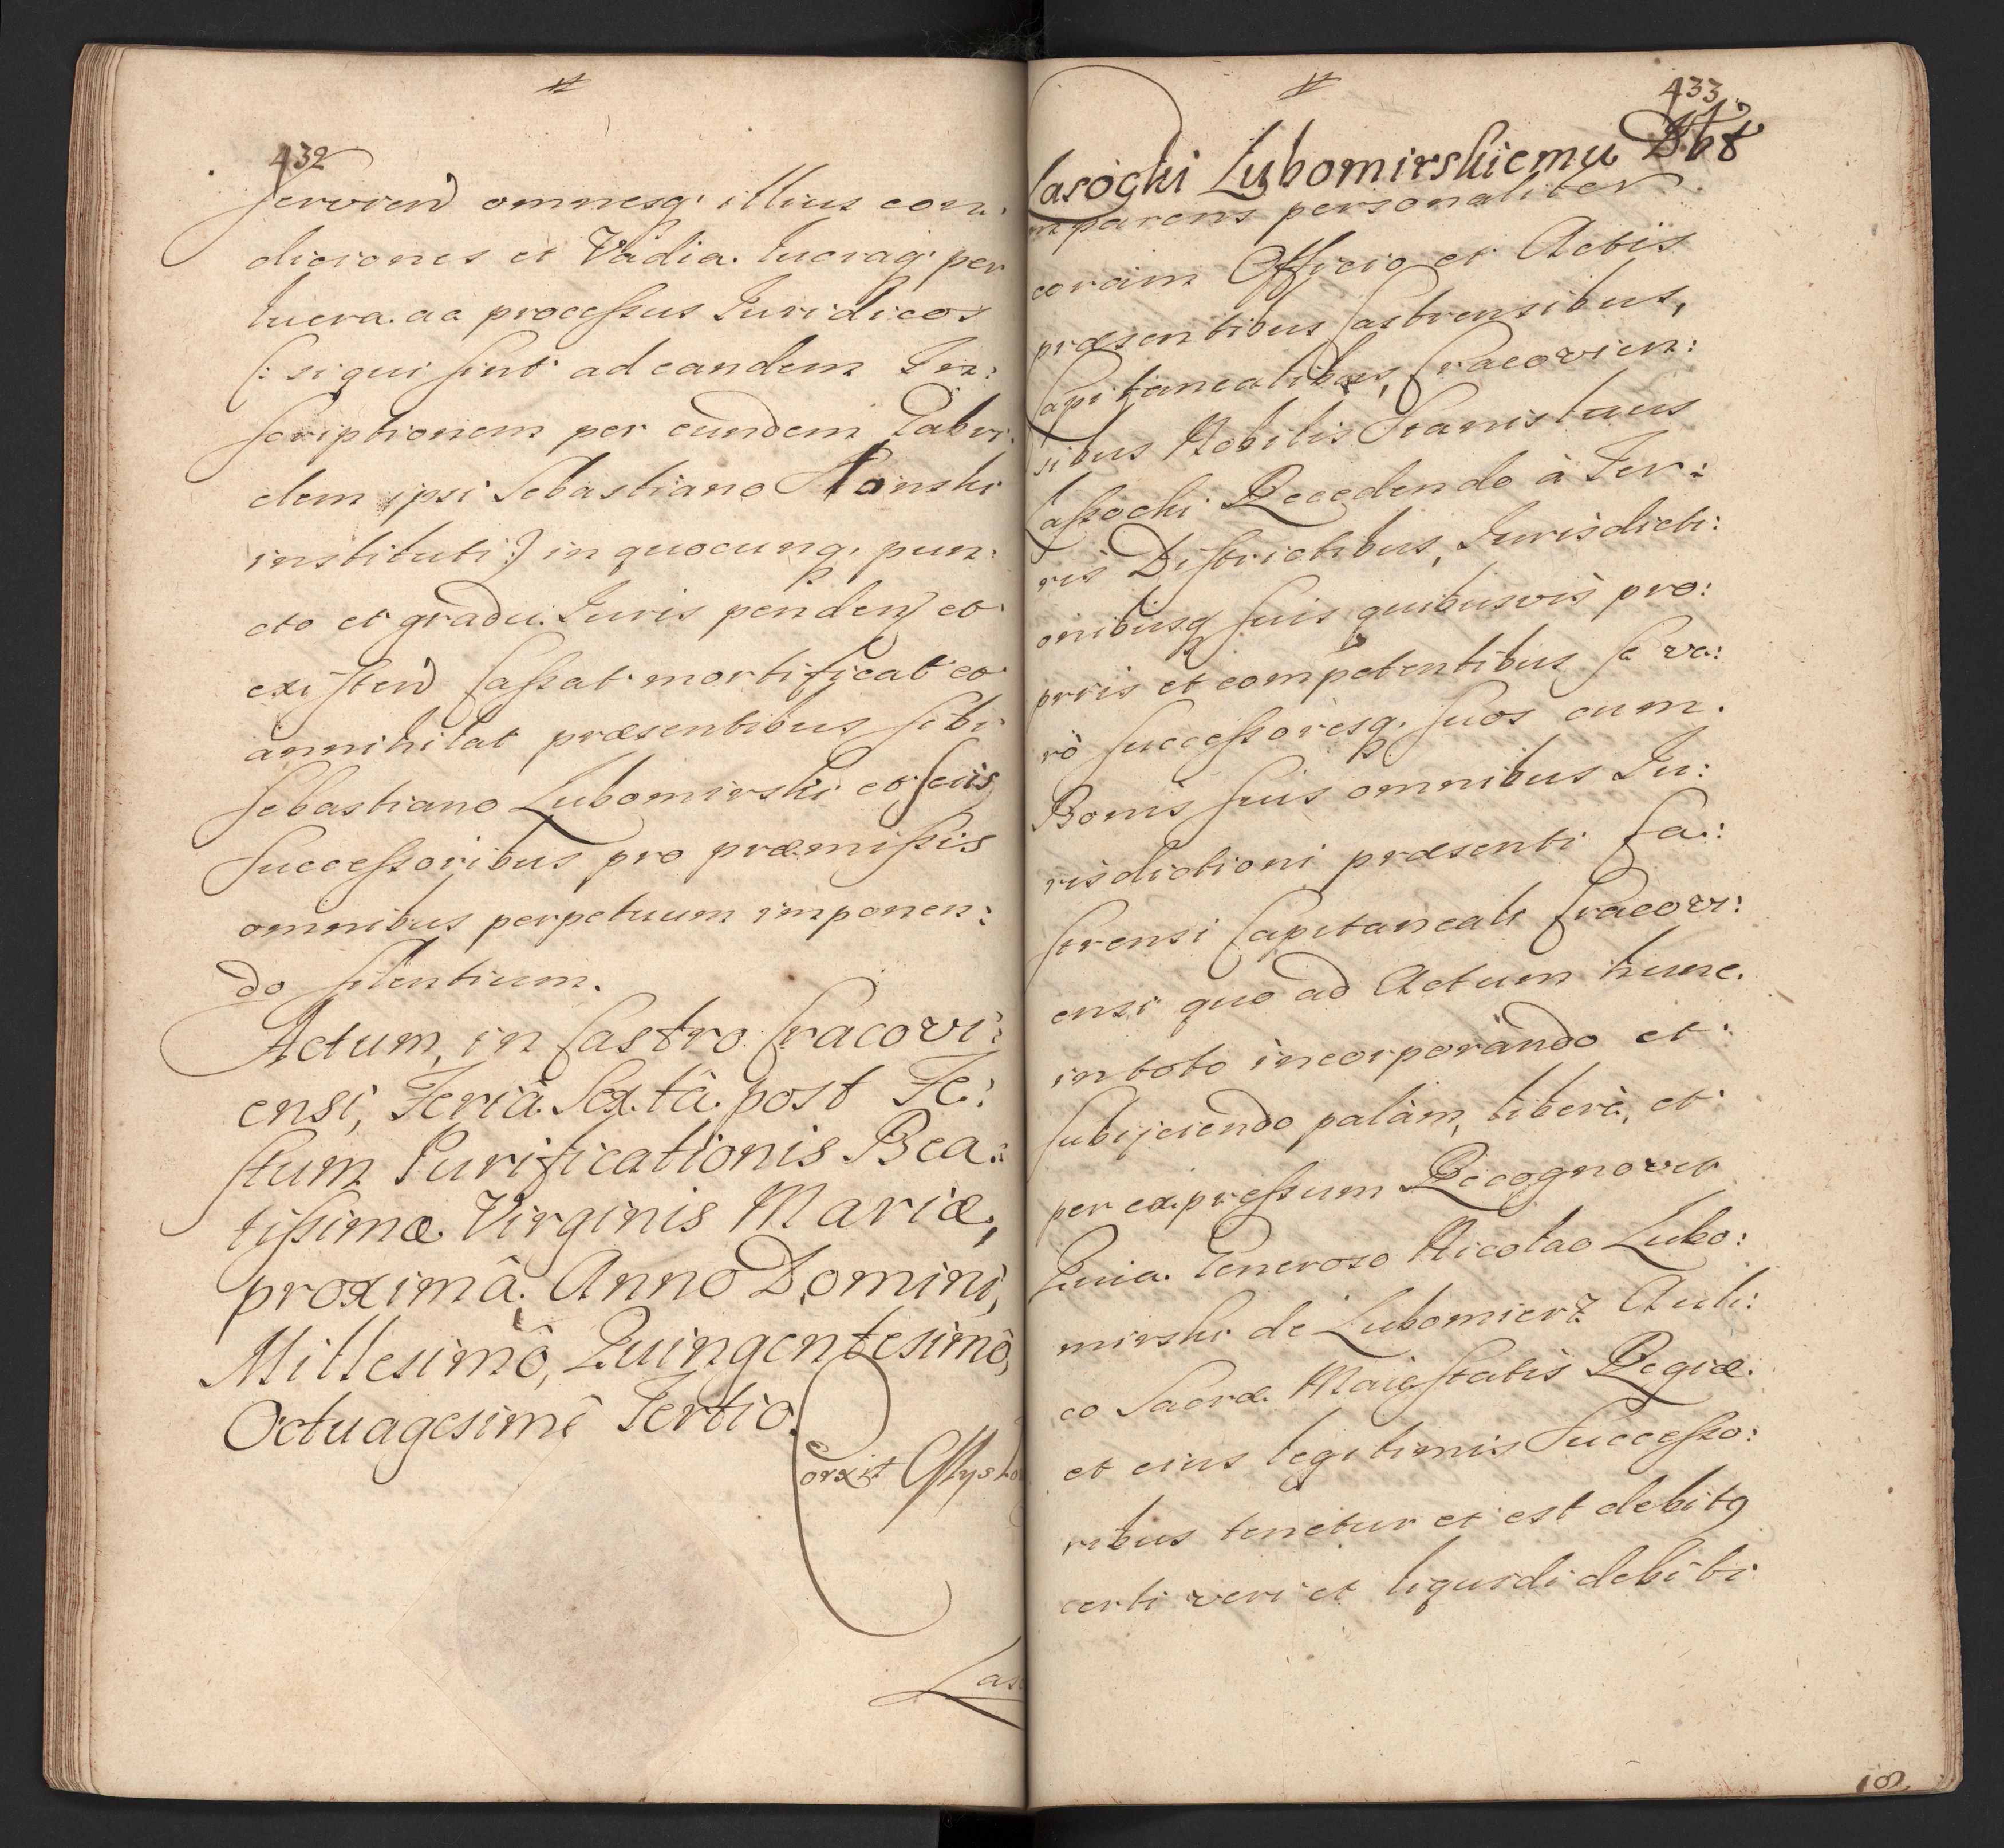 432
servien) omnesq. illius con:
diciones et Vadia. lucraq. per
lucra. ac processus Iuridicos
(: siqui sint ad eandem In:
scriptionem per eundem Gabri:
elem ipsi Sebastiano
instituti :) in quocunq. pun:
cto et gradu. Iuris penden) et
existen) Cassat mortificat et
annihilat præsentibus sibi
Sebastiano Lubomirski et suis
Successoribus pro præmissis
omnibus perpetuum imponen:
do silentium.
Actum, in Castro Cracovi:
ensi, Feriâ Sextâ post Fe:
stum Purificationis Bea:
tissimæ Virginis Mariæ,
proximâ. Anno Domini,
Millesimô, Quingentesimô,
Octuagesimô Tertio.
Corxit
Las
433
Lasocki Lubomirskiemu Dbt
mparens personaliter
coram Officio et Actis
præsentibus Castrensibus,
Capitanealibus, Cracovien:
sibus Nobilis Stanislaus
Lassocki Recedendo à Ter:
ris Districtibus, Iurisdicti:
onibusq suis quibusvis pro:
priis et competentibus se ve:
rò successoresq. suos cum.
Bonis suis omnibus Iu:
risdictioni præsenti Ca:
strensi Capitaneali Cracovi:
ensi quo ad Actum hunc.
in toto incorporando et
subijciendo palàm, liberè, et
per expressum Recognovit
Quia. Generoso Nicolao Lubo:
mirski de Lubomierz Auli:
co Sacræ Maiestatis Regiæ.
et eius legitimis Successo:
ribus tenetur et est debitq
certi veri et liquidi debiti